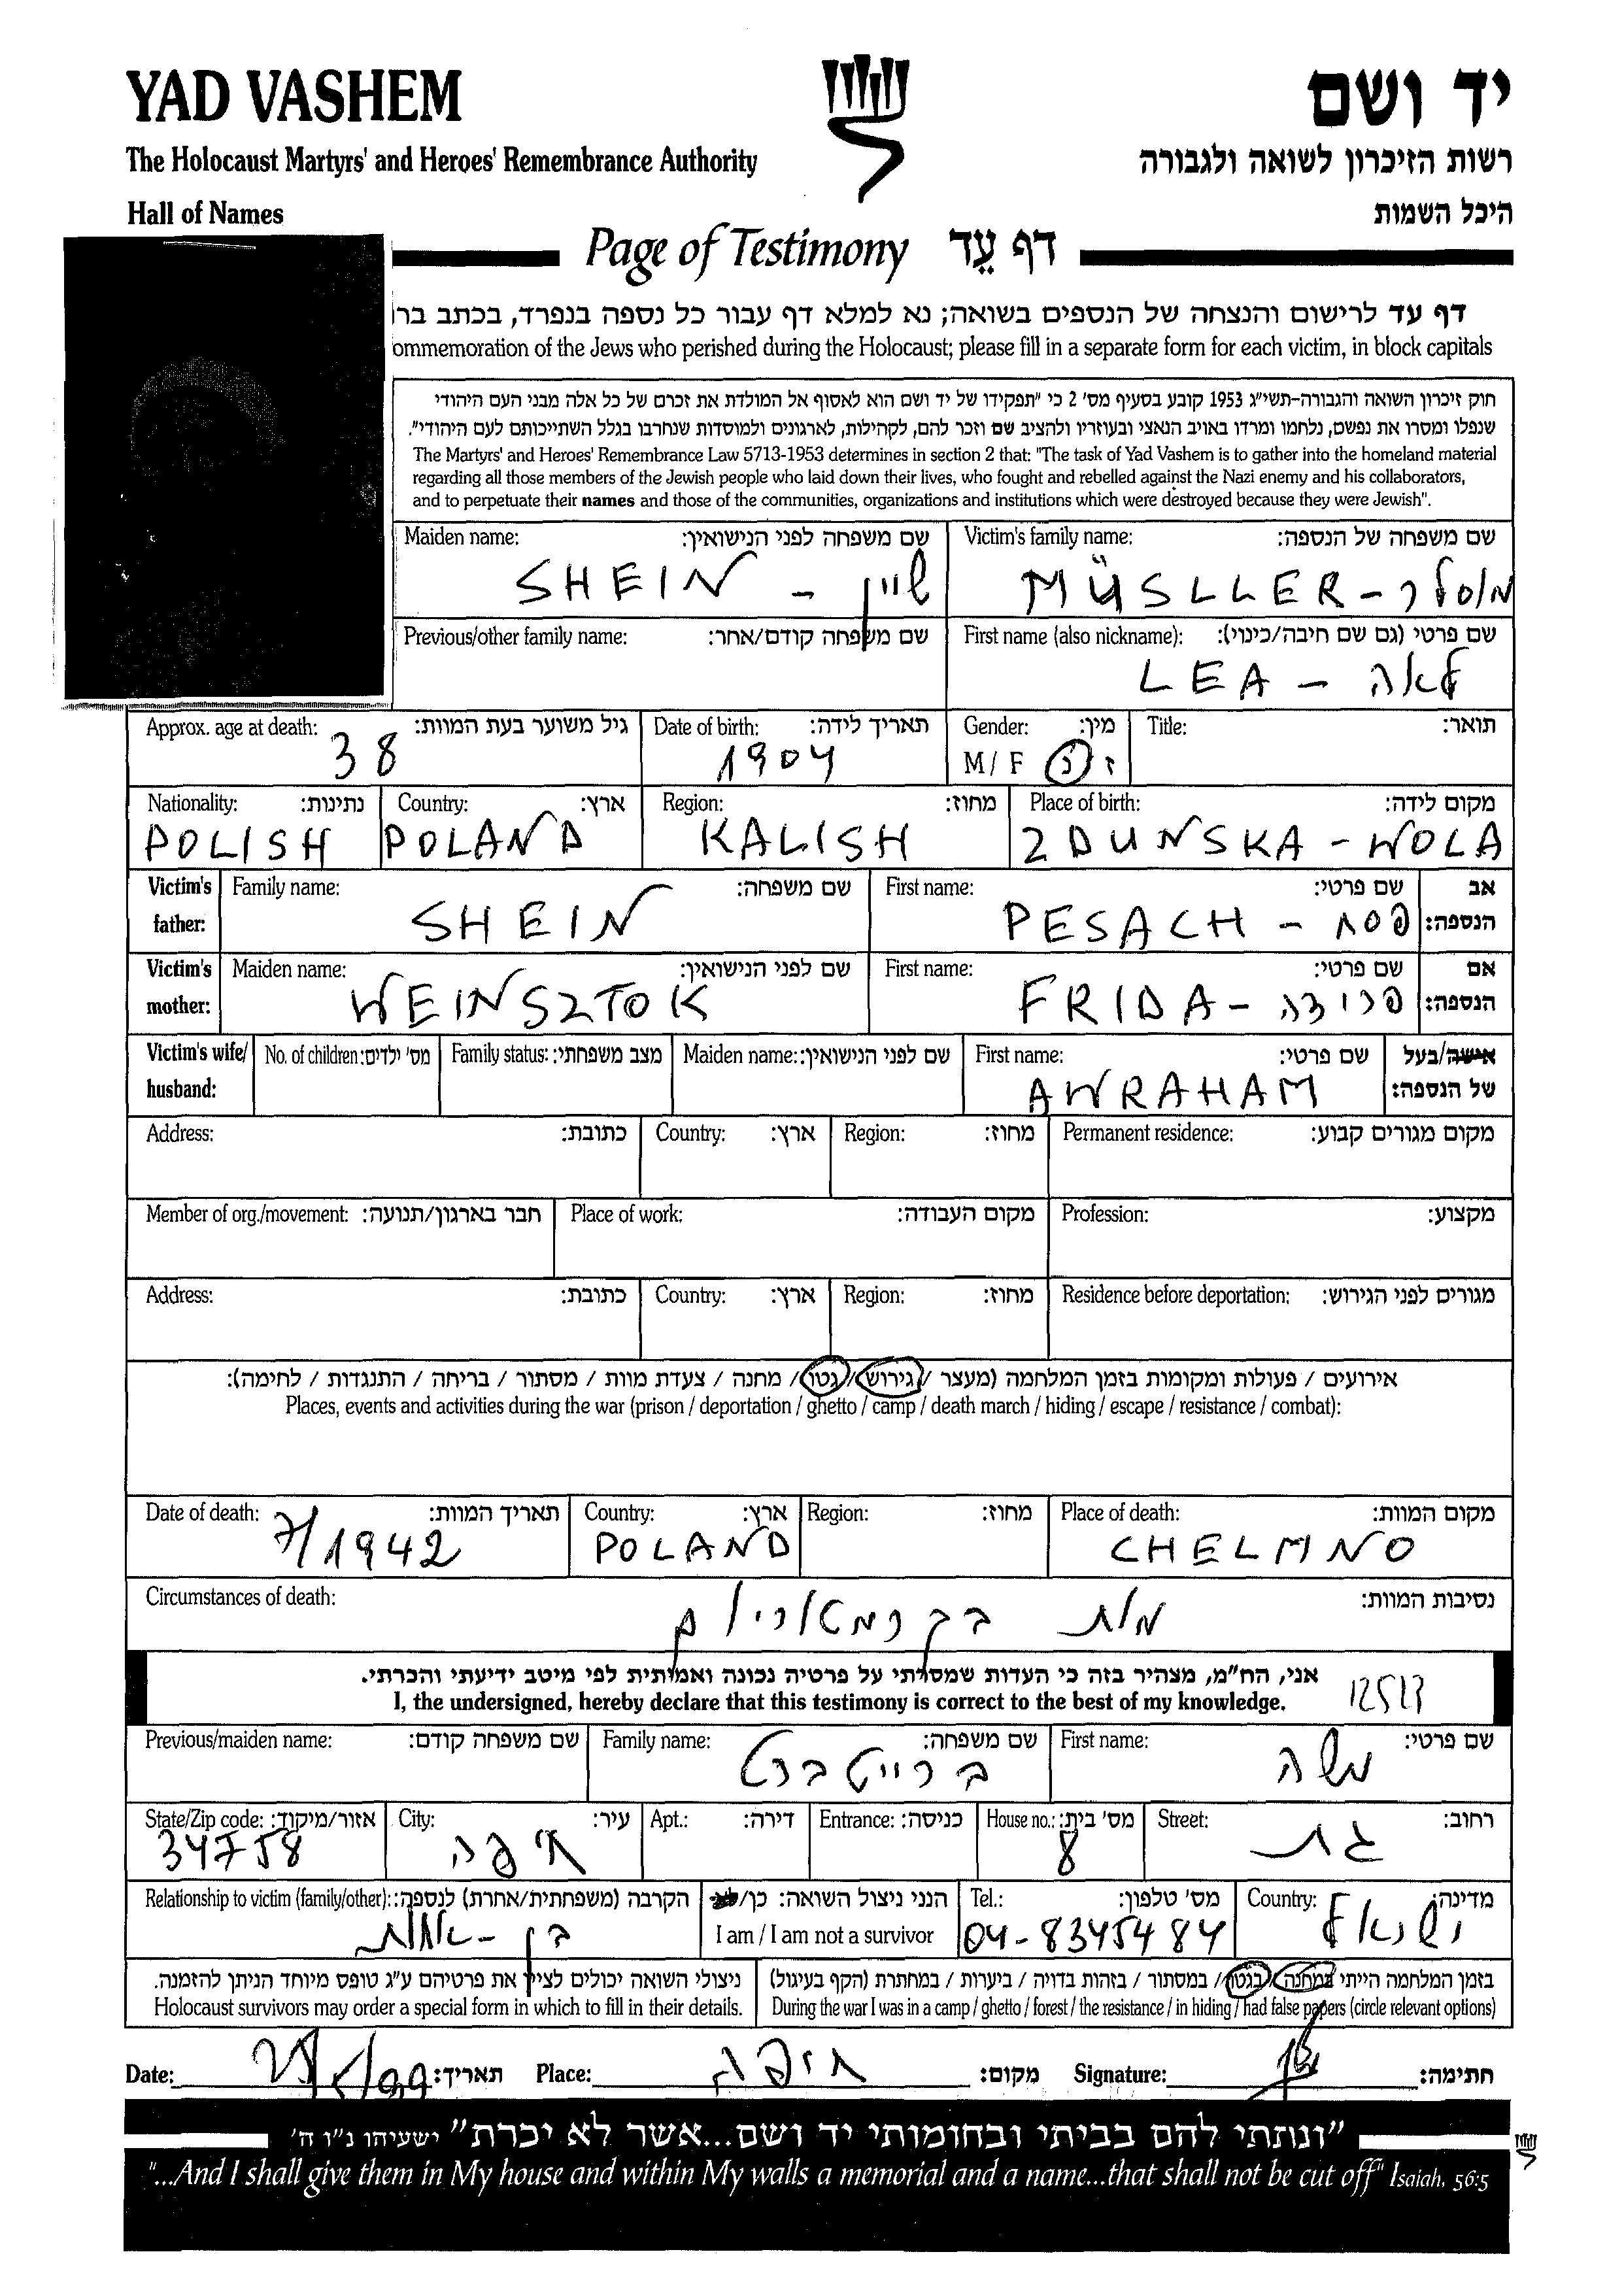 YAD VASHEM
יד ושם
The Holocaust Martyrs' and Heroes' Remembrance Authority
רשות הזיכרון לשואה ולגבורה
Hall of Names
היכל השמות
Page of Testimony דף עֵד
דף עד לרישום והנצחה של הנספים בשואה; נא למלא דף עבור כל נספה בנפרד, בכתב
ommemoration of the Jews who perished during the Holocaust; please fill in a separate form for each victim, in block capitals
חוק זיכרון השואה והגבורה-תשי״ג 1953 קובע בסעיף מס׳ 2 כי ״תפקידו של יד ושם הוא לאסוף אל המולדת את זכרם של כל אלה מבני העם היהודי
שנפלו ומסרו את נפשם, נלחמו ומרדו באויב הנאצי ובעוזריו ולהציב שם וזכר להם, לקהילות, לארגונים ולמוסדות שנחרבו בגלל השתייכותם לעם היהודי״.
The Martyrs' and Heroes' Remembrance Law 5713-1953 determines in section 2 that: "The task of Yad Vashem is to gather into the homeland material
regarding all those members of the Jewish people who laid down their lives, who fought and rebelled against the Nazi enemy and his collaborators,
and to perpetuate their names and those of the communities, organizations and institutions which were destroyed because they were Jewish".
Maiden name: שם משפחה לפני הנישואין: Victim's family name: שם משפחה של הנספה:
SHEIN - שיין MÜSLLER - מוסלר
Previous/other family name: שם משפחה קודם/אחר: First name (also nickname): שם פרטי (גם שם חיבה/כינוי):
LEA - לאה
Approx. age at death: גיל משוער בעת המוות: Date of birth: תאריך לידה: Gender: מין: Title: תואר:
38 1904 M / F ז נ
Nationality: נתינות: Country: ארץ: Region: מחוז: Place of birth: מקום לידה:
POLISH POLAND KALISH ZDUNSKA - WOLA
Victim's father: Family name: שם משפחה: First name: שם פרטי: אב הנספה:
SHEIN PESACH - פסח
Victim's mother: Maiden name: שם לפני הנישואין: First name: שם פרטי: אם הנספה:
WEINSZTOK FRIDA - פרידה
Victim's wife/ husband: No. of children: מס׳ ילדים: Family status: מצב משפחתי: Maiden name: שם לפני הנישואין: First name: שם פרטי: אישה/בעל של הנספה:
AWRAHAM
Address: כתובת: Country: ארץ: Region: מחוז: Permanent residence: מקום מגורים קבוע:
Member of org./movement: חבר בארגון/תנועה: Place of work: מקום העבודה: Profession: מקצוע:
Address: כתובת: Country: ארץ: Region: מחוז: Residence before deportation: מגורים לפני הגירוש:
אירועים / פעולות ומקומות בזמן המלחמה (מעצר / גירוש / גטו / מחנה / צעדת מוות / מסתור / בריחה / התנגדות / לחימה):
Places, events and activities during the war (prison / deportation / ghetto / camp / death march / hiding / escape / resistance / combat):
Date of death: תאריך המוות: Country: ארץ: Region: מחוז: Place of death: מקום המוות:
7/1942 POLAND CHELMNO
Circumstances of death: נסיבות המוות:
מות בקרמטוריום
אני, הח״מ, מצהיר בזה כי העדות שמסרתי על פרטיה נכונה ואמיתית לפי מיטב ידיעתי והכרתי.
I, the undersigned, hereby declare that this testimony is correct to the best of my knowledge.
Previous/maiden name: שם משפחה קודם: Family name: שם משפחה: First name: שם פרטי:
ברייטברט משה
State/Zip code: אזור/מיקוד: City: עיר: Apt.: דירה: Entrance: כניסה: House no.: מס׳ בית: Street: רחוב:
34758 חיפה 8 גת
Relationship to victim (family/other): הקרבה (משפחתית/אחרת) לנספה: הנני ניצול השואה: כן/ Tel.: מס׳ טלפון: Country: מדינה:
בן - אחות I am / I am not a survivor 04-8345484 ישראל
ניצולי השואה יכולים לציין את פרטיהם ע״ג טופס מיוחד הניתן להזמנה. בזמן המלחמה הייתי במחנה / בגטו / במסתור / בזהות בדויה / ביערות / במחתרת (הקף בעיגול)
Holocaust survivors may order a special form in which to fill in their details. During the war I was in a camp / ghetto / forest / the resistance / in hiding / had false papers (circle relevant options)
Date: תאריך: Place: חיפה מקום: Signature: חתימה:
״ונתתי להם בביתי ובחומותי יד ושם...אשר לא יכרת״ ישעיהו נ״ו ה׳
"...And I shall give them in My house and within My walls a memorial and a name...that shall not be cut off" Isaiah, 56:5